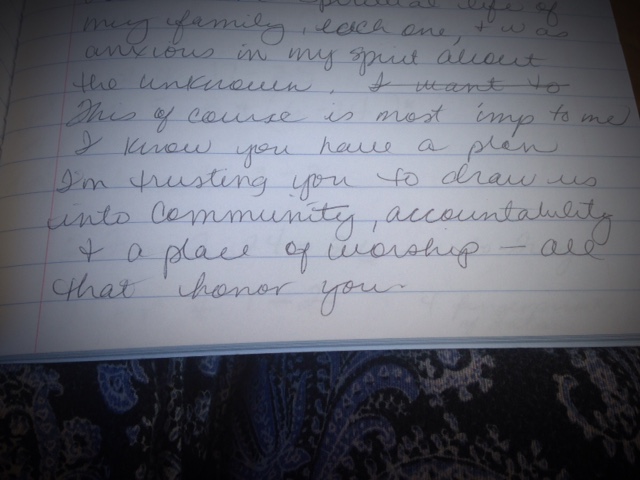 spiritual life of
my family, each one, + was
anxious in my spirit about
the unknown. I want to
This of course is most imp to me
I know you have a plan
I'm trusting you to draw us
into community, accountability
+ a place of worship — all
that honor you.